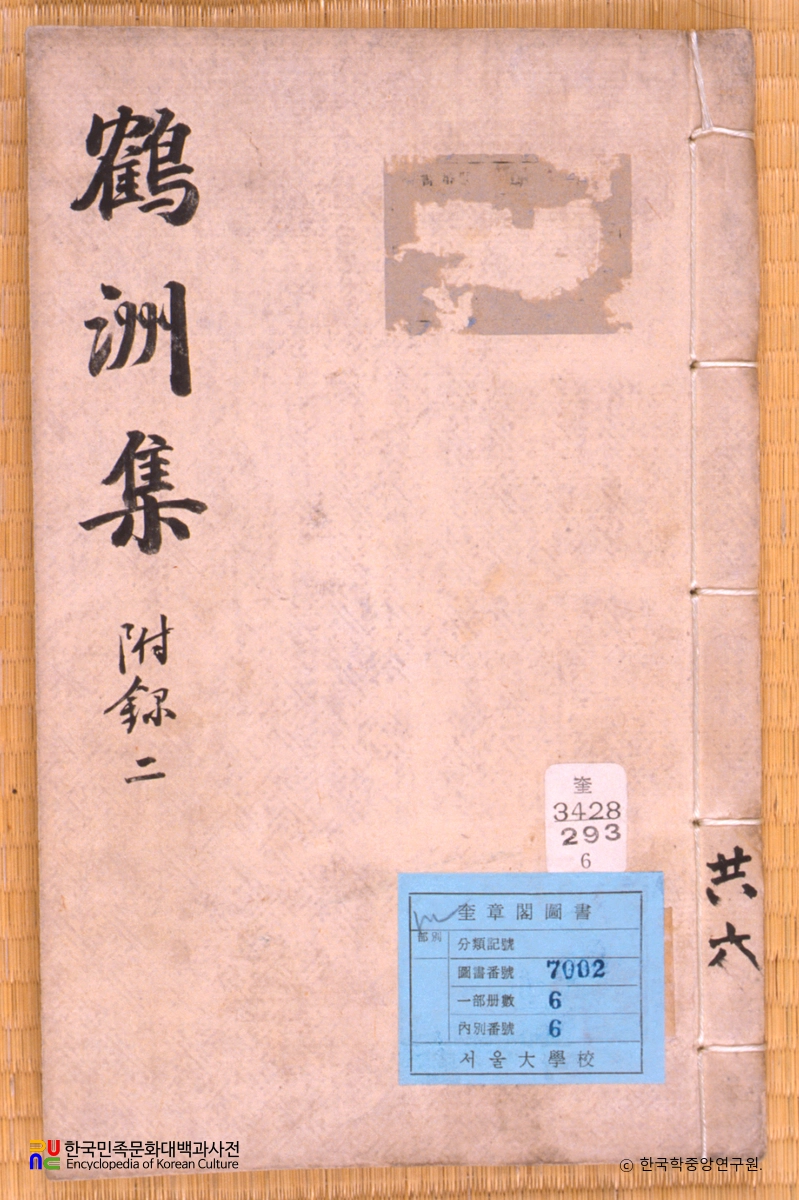 鶴洲集
附録二
共六
奎
3428
293
6
奎章閣圖書
部別
分類記號
圖書番號 7002
一部册數 6
內別番號 6
서울大學校
한국민족문화대백과사전
Encyclopedia of Korean Culture
© 한국학중앙연구원.